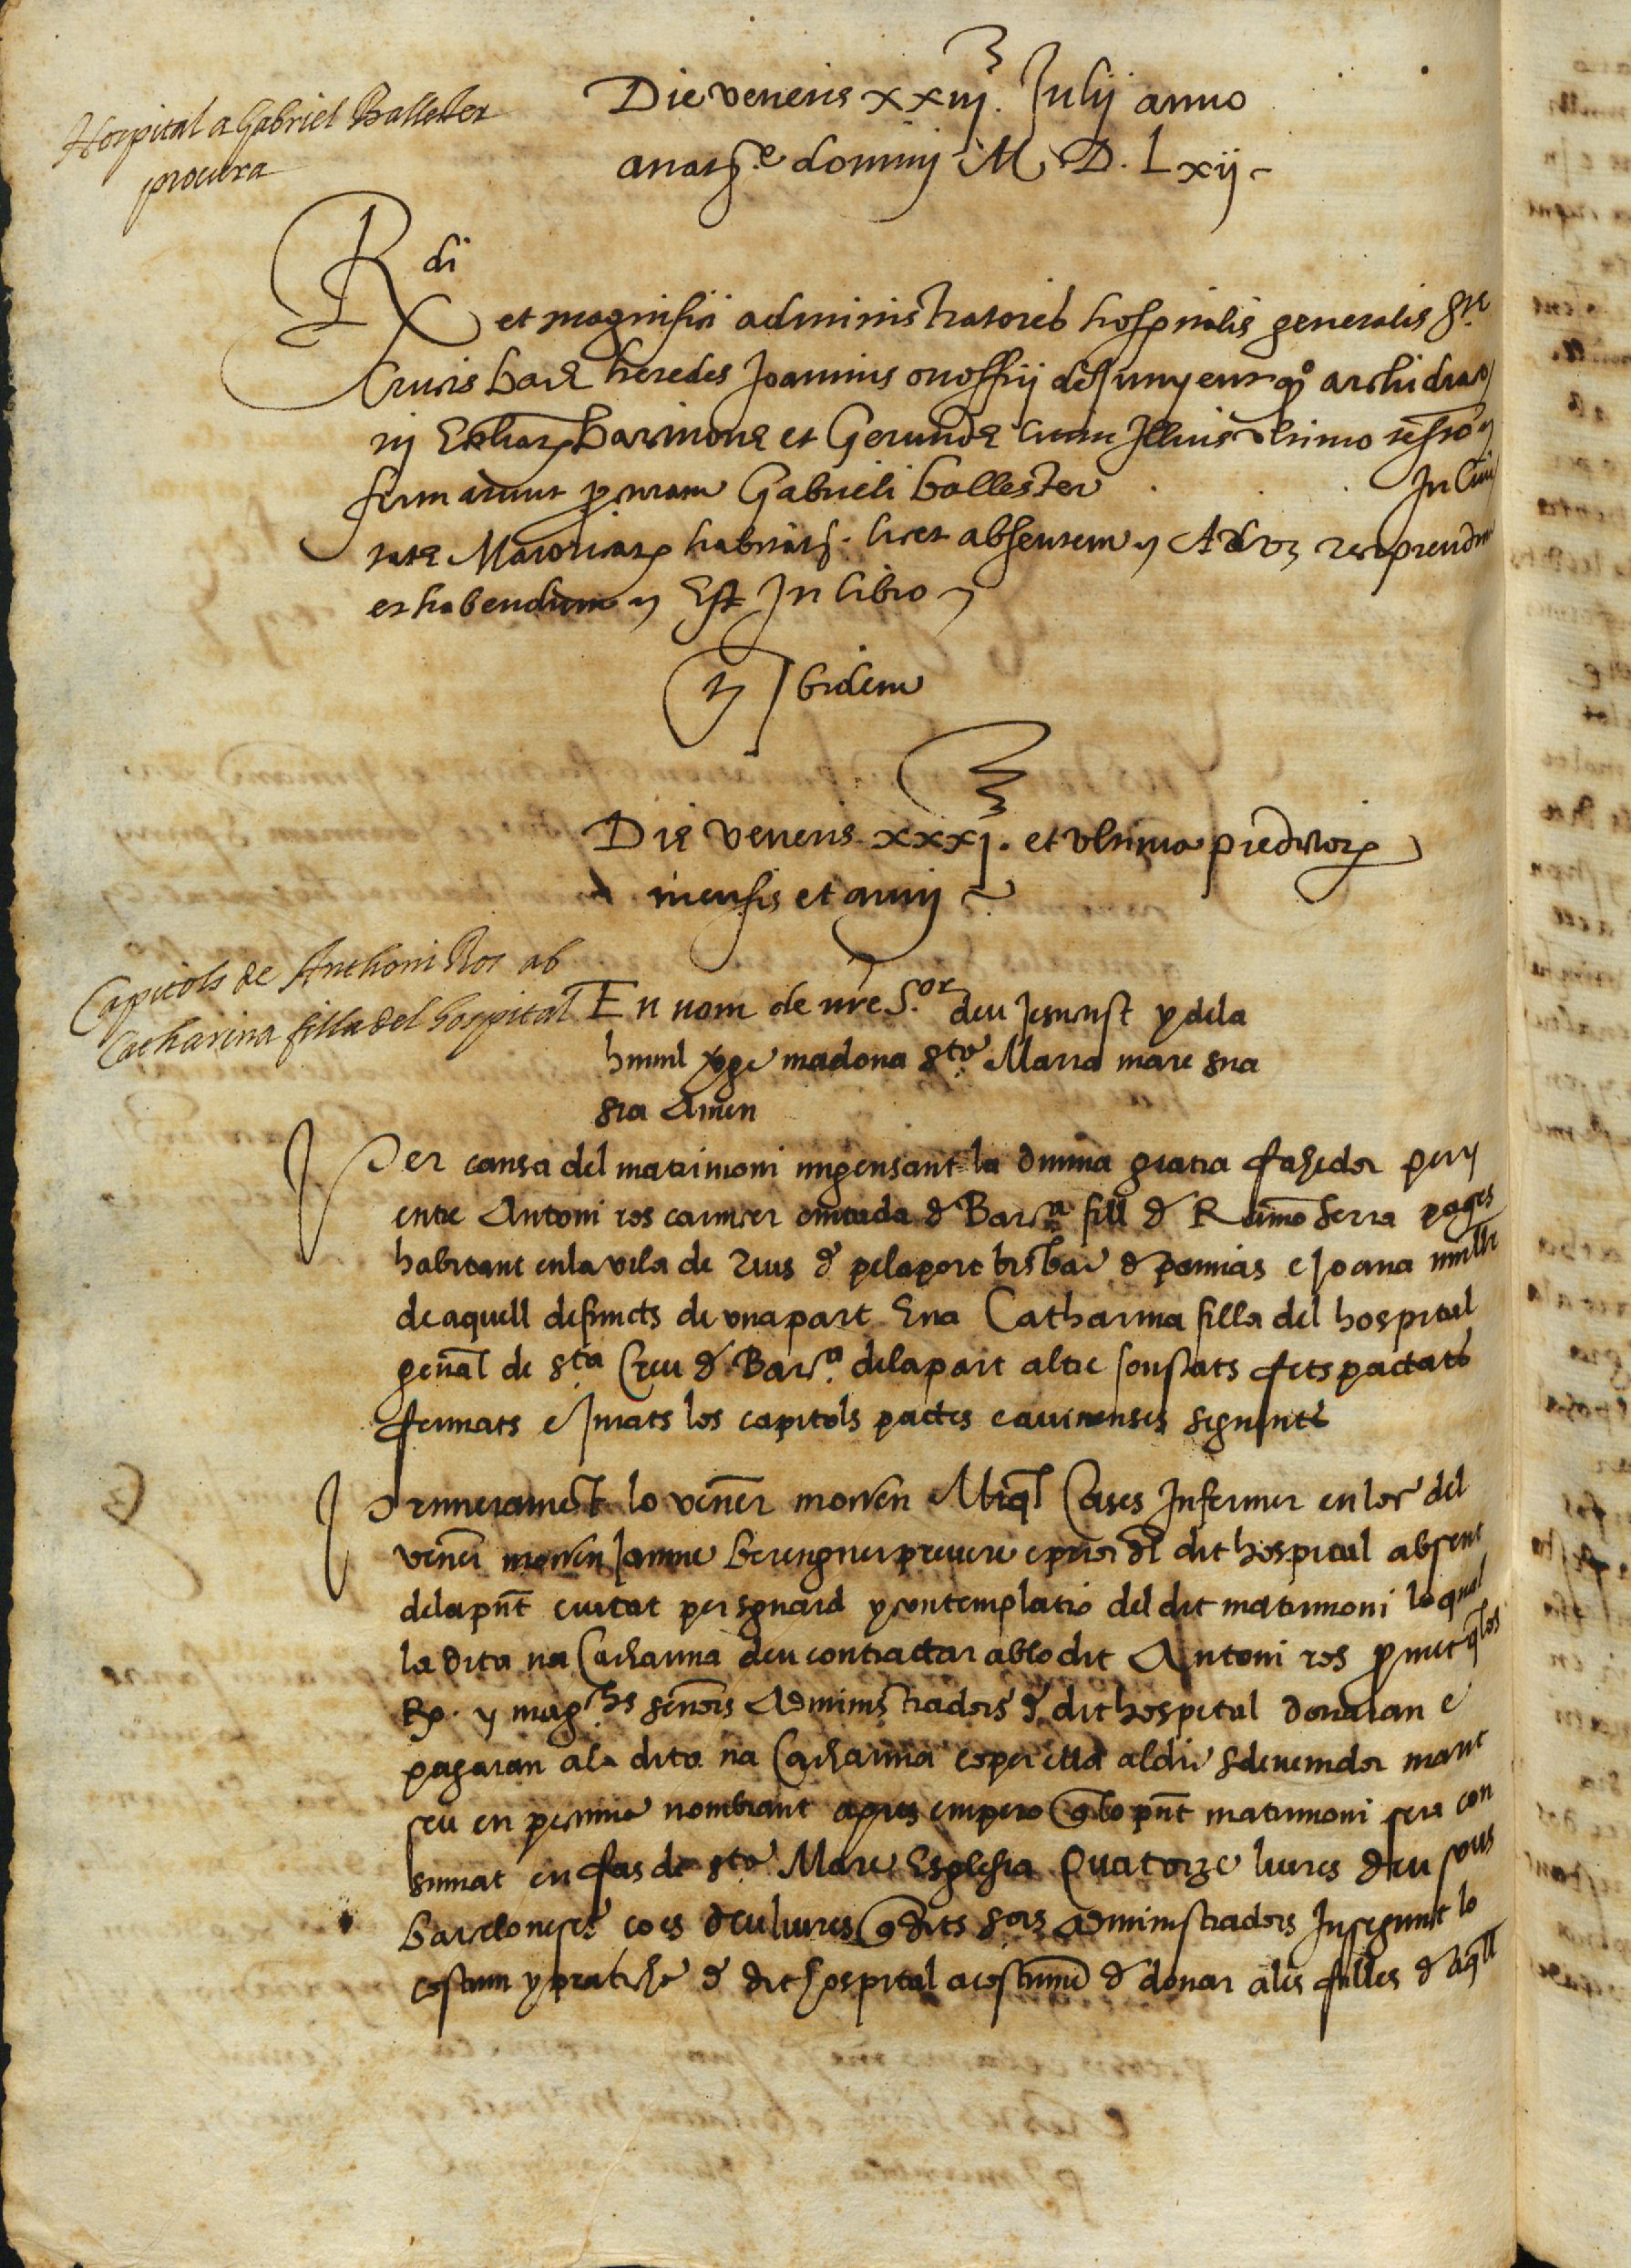 Hospital a Gabriel Ballester
procura
Die veneris xxiij. Julij anno
a natte domini M D. Lxij
Rdi
et magnifici administratores hospitalis generalis ste
Crucis barne heredes Joannis onoffrij de Junyent qo archidiaco
nj Ecclesiarum barcinone et Gerunde cum Illius ultimo testo
firmarunt procuram Gabrieli ballester In Civi
tate Maioricarum habitatj. licet absentem Ad recipiendum
et habendum Est In libro
Ibidem
Die veneris xxxj. et ultima predictorum
mensis et annj
Capitols de Anthoni Ros ab
Catharina filla del hospital
En nom de nre Sor deu Jesucrist y de la
humil verge madona sta Maria mare sua
sia Amen
Per causa del matrimoni mijensant la divina gratia fahedor per y
entre Antoni ros carnicer ciutada d Barna fill d Ramo serra pages
habitant en la vila de Rius d pelaport bisbat d pamias e Joana muller
de aquell defuncts de una part Ena Catharina filla del hospital
genal de sta Creu d Barna dela part altre son stats fets pactats
fermats e Jurats los capitols pactes e avinenses seguents
Primerament lo vener mossen Miql Cases Infermer en loc del
vener mossen Jaume berenguer prevere e prior del dit hospital absent
dela pnt ciutat per sguard y contemplatio del dit matrimoni lo qual
la dita na Catharina deu contractar ab lo dit Antoni ros promet q los
Rs. y magchs senors Administradors d dit hospital donaran e
pagaran ala dita na Catharina e o per ella al dit sdevenidor marit
seu en pecunia nombrant apres empero q lo pnt matrimoni sera con
sumat en fas de sta Mare Esglesia Quatorze liures deu sous
barceloneses ço es deu liures q dits sors Administradors Inseguint lo
costum y pratica d dit hospital acostumen d donar ales filles d aqll